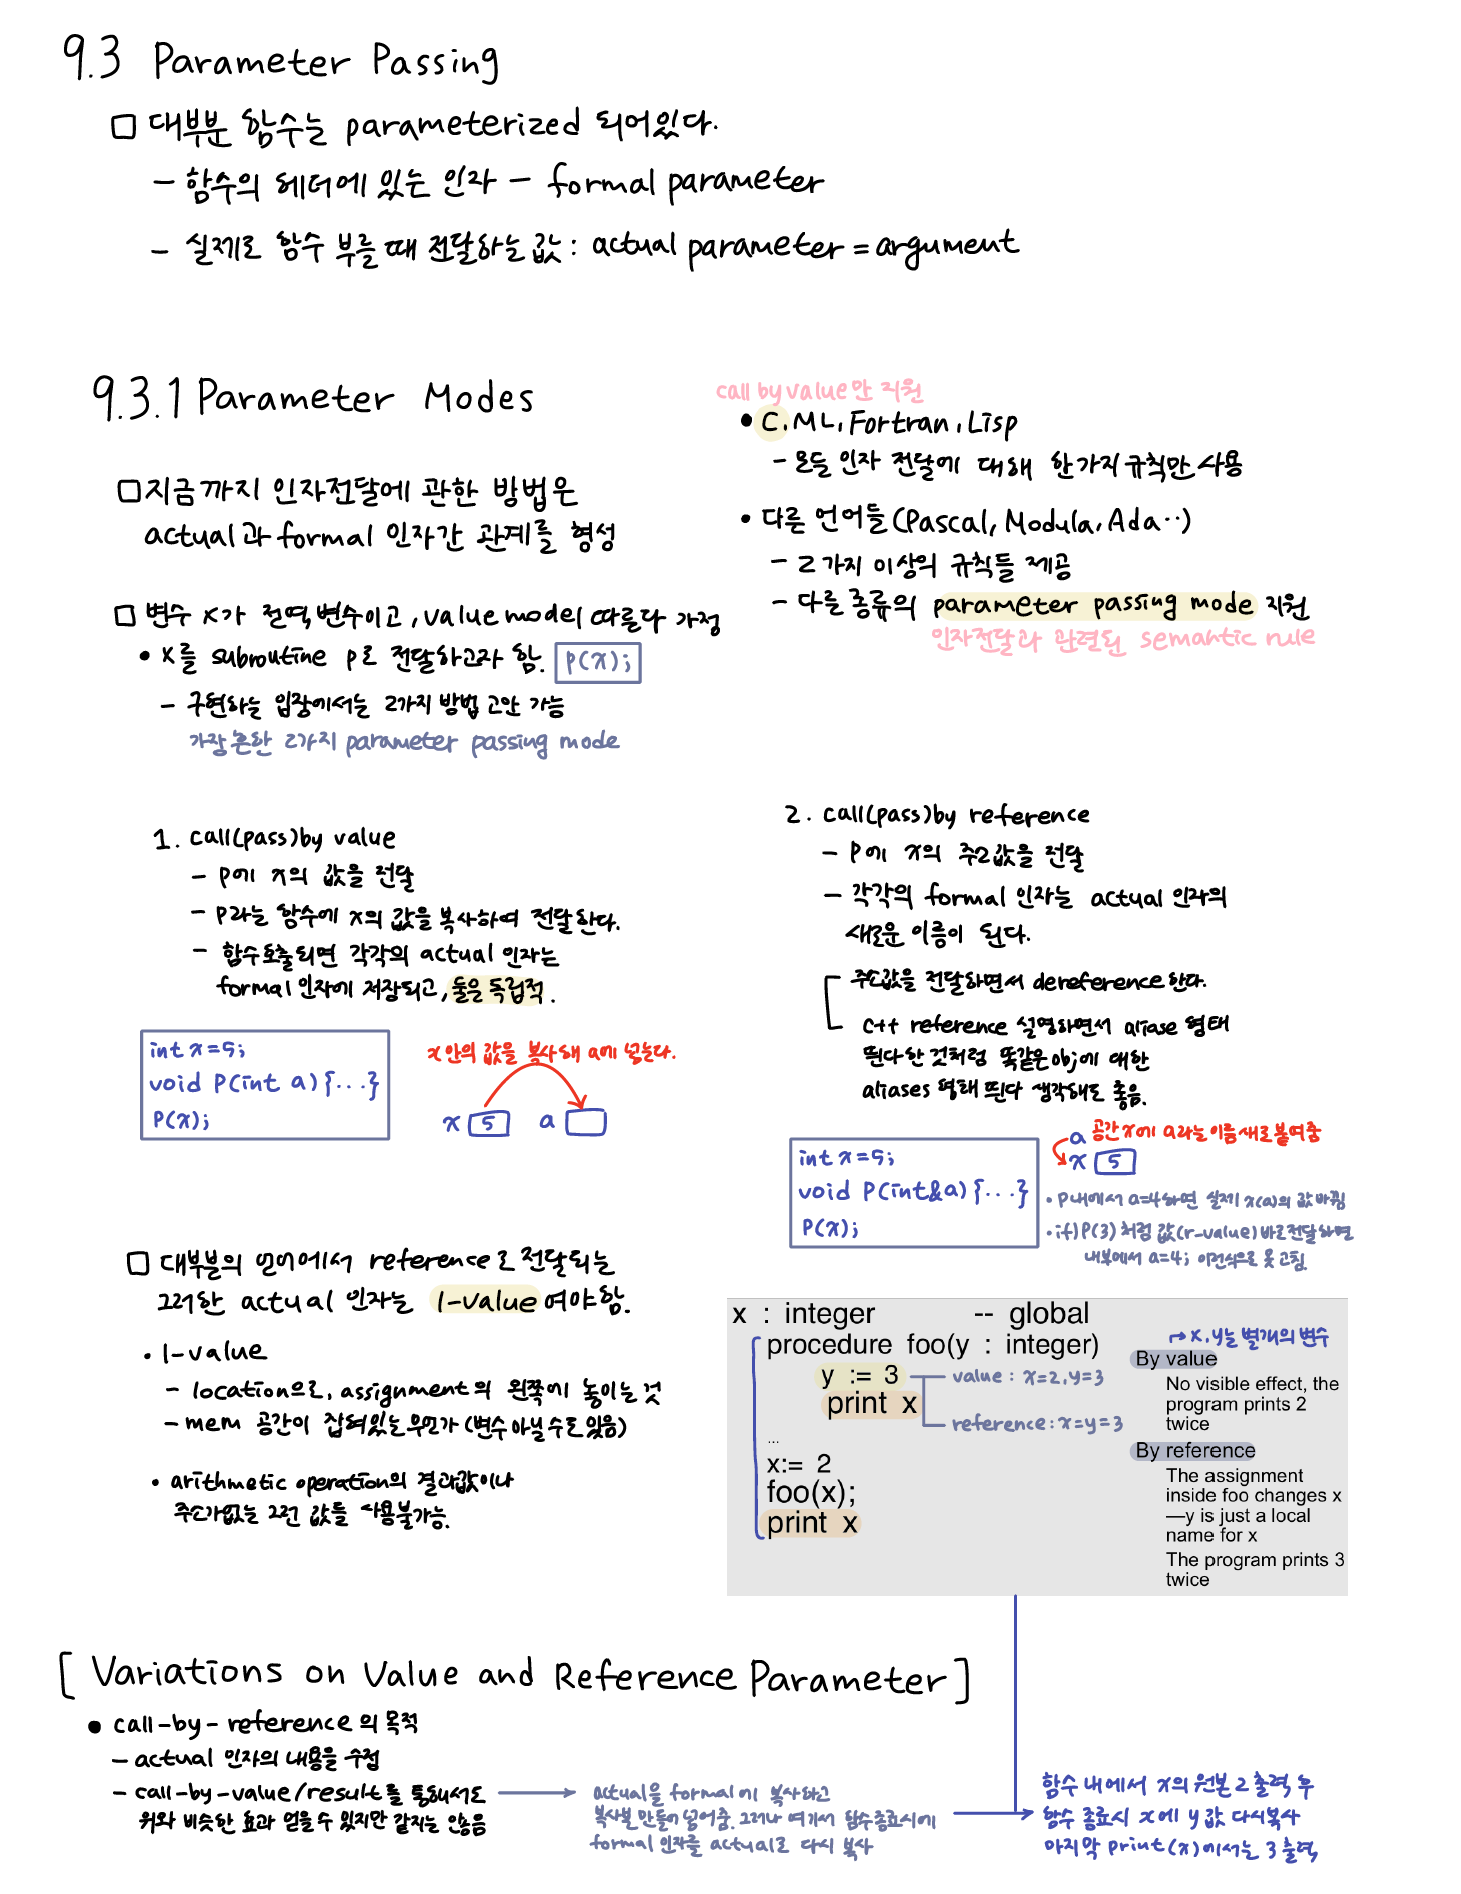 9.3 Parameter Passing
□ 대부분 함수는 parameterized 되어있다.
- 함수의 헤더에 있는 인자 - formal parameter
- 실제로 함수 부를 때 전달하는 값 : actual parameter = argument
9.3.1 Parameter Modes
□ 지금까지 인자전달에 관한 방법은
actual과 formal 인자간 관계를 형성
□ 변수 x가 전역변수이고, value model 따른다 가정
• x를 subroutine p로 전달하고자 함. p(x);
- 구현하는 입장에서는 2가지 방법 고안 가능
가장 흔한 2가지 parameter passing mode
call by value만 지원
• C, ML, Fortran, Lisp
- 모든 인자 전달에 대해 한가지 규칙만 사용
• 다른 언어들 (Pascal, Modula, Ada..)
- 2가지 이상의 규칙들 제공
- 다른 종류의 parameter passing mode 지원
인자전달과 관련된 semantic rule
1. call(pass)by value
- p에 x의 값을 전달
- p라는 함수에 x의 값을 복사하여 전달한다.
- 함수호출되면 각각의 actual 인자는
formal 인자에 저장되고, 둘은 독립적.
int x=5;
void P(int a){...}
P(x);
x안의 값을 복사해 a에 넣는다.
x 5 a
2. call(pass)by reference
- p에 x의 주소값을 전달
- 각각의 formal 인자는 actual 인자의
새로운 이름이 된다.
- 주소값을 전달하면서 dereference 한다.
- c++ reference 설명하면서 aliase 형태
띈다 한 것처럼 똑같은 obj에 대한
aliases 형태 띈다 생각해도 좋음.
int x=5;
void P(int&a){...}
P(x);
a 공간 x에 a라는 이름 새로 붙여줌
x 5
• p내에서 a=4하면 실제 x(a)의 값 바뀜
• if) P(3)처럼 값(r-value) 바로 전달하면
내부에서 a=4; 이런식으로 못 고침.
□ 대부분의 언어에서 reference로 전달되는
그러한 actual 인자는 l-value 여야 함.
• l-value
- location으로, assignment의 왼쪽에 놓이는 것
- mem 공간이 잡혀있는 무언가 (변수 아닐 수도 있음)
• arithmetic operation의 결과값이나
주소가 없는 그런 값들 사용불가능.
x : integer -- global
procedure foo(y : integer)
y := 3
print x
...
x:= 2
foo(x);
print x
value : x=2, y=3
reference : x=y=3
→ x, y는 별개의 변수
By value
No visible effect, the
program prints 2
twice
By reference
The assignment
inside foo changes x
—y is just a local
name for x
The program prints 3
twice
[ Variations on Value and Reference Parameter ]
• call-by-reference의 목적
- actual 인자의 내용을 수정
- call-by-value/result를 통해서도
위와 비슷한 효과 얻을 수 있지만 같지는 않음
actual을 formal에 복사하고
복사본 만들어 넘어줌. 그러나 여기서 함수종료시에
formal 인자를 actual로 다시 복사
함수 내에서 x의 원본 2 출력 후
함수 종료시 x에 y 값 다시복사
마지막 print(x)에서는 3 출력